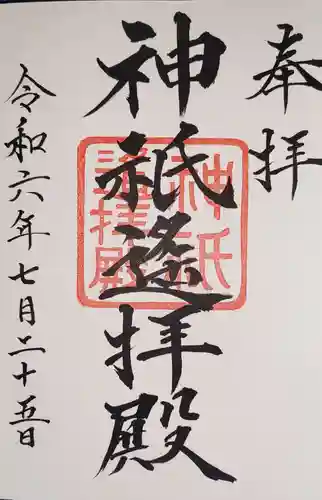 奉拝
神祇遙拝殿
神祇
遥拝殿
令和六年七月二十五日